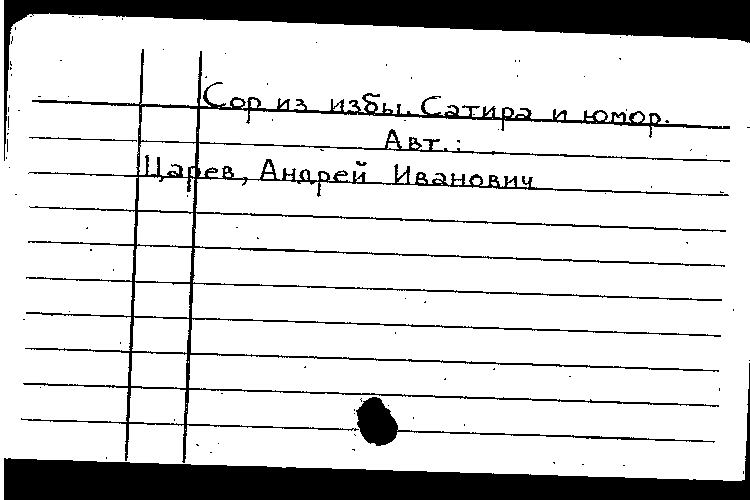 Сор из избы. Сатира и юмор.
Авт.:
Царев, Андрей Иванович